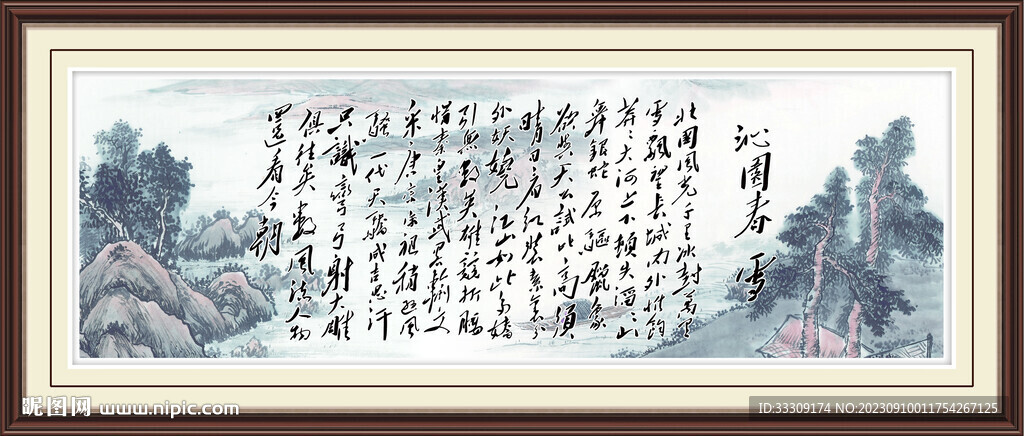 沁園春 雪
北國風光千里冰封萬里
雪飄望長城內外惟餘
莽々大河上下頓失滔々山
舞銀蛇原驅臘象
欲與天公試比高須
晴日看紅裝素裹分
外妖嬈江山如此多嬌
引無數英雄競折腰
惜秦皇漢武略輸文
采唐宗宋祖稍遜風
騷一代天驕成吉思汗
只識彎弓射大雕
俱往矣數風流人物
還看今朝
昵图网 www.nipic.com
ID:33309174 NO:20230910011754267125